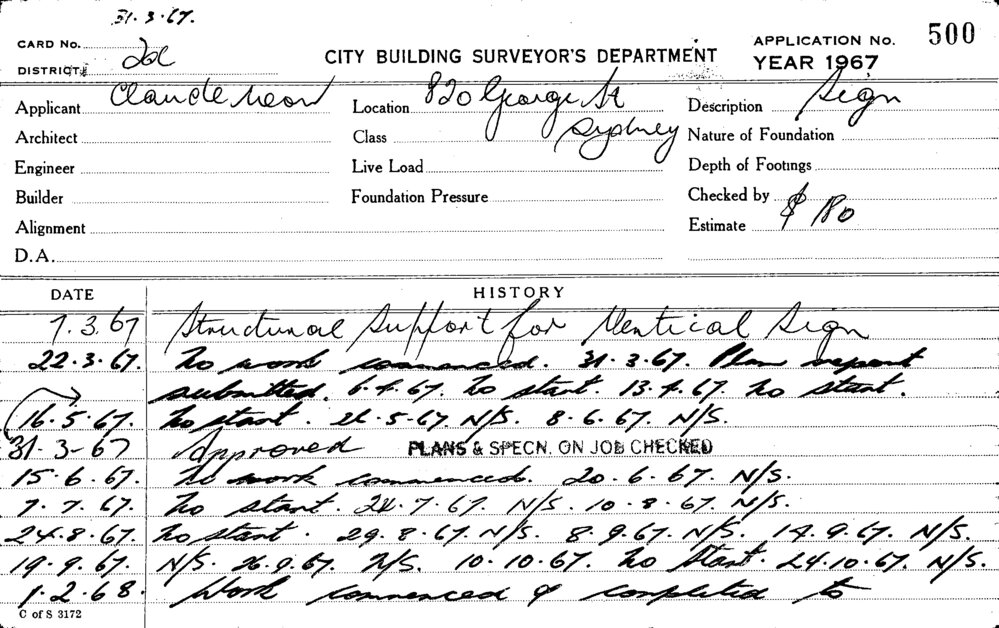 31.3.67.
CARD No.
DISTRICT
CITY BUILDING SURVEYOR'S DEPARTMENT
APPLICATION No. 500
YEAR 1967
Applicant Claude Neon Location 820 George St Description Sign
Architect Class Sydney Nature of Foundation
Engineer Live Load Depth of Footings
Builder Foundation Pressure Checked by
Alignment Estimate $ 180
D.A.
DATE HISTORY
7.3.67 Structural Support for Vertical Sign
22.3.67. No work commenced. 31.3.67. Plan report
submitted. 6.4.67. No start. 13.4.67. No start.
16.5.67. No start. 5.67 N/S. 8.6.67. N/S.
31-3-67 Approved PLANS & SPECN. ON JOB CHECKED
15.6.67. No work commenced. 20.6.67. N/S.
7.7.67. No start. 24.7.67. N/S. 10.8.67. N/S.
24.8.67. No start. 29.8.67. N/S. 8.9.67. N/S. 14.9.67. N/S.
19.9.67. N/S. 26.9.67. N/S. 10.10.67. No Start. 24.10.67. N/S.
1.2.68. Work commenced & completed to
C of S 3172